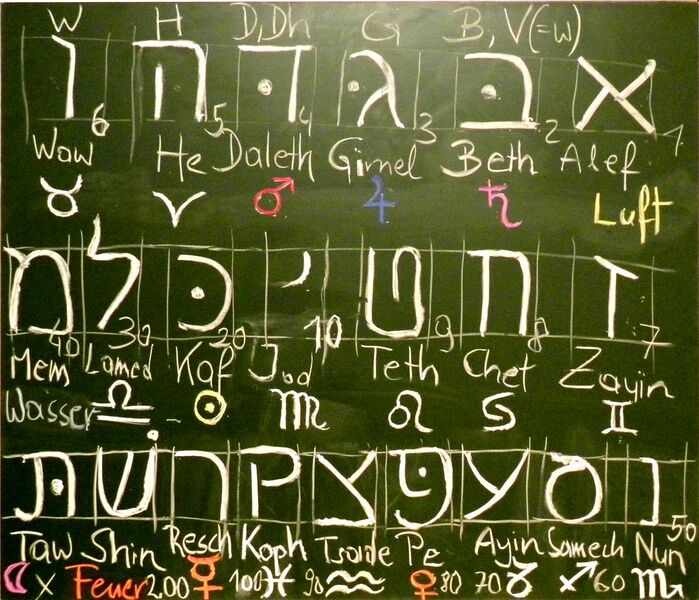 W H D,Dh G B, V(=w)
א בּ גּ דּ ה ו
6 5 4 3 2 1
Waw He Daleth Gimel Beth Alef
♉ ♈ ♂ ♃ ♄ Luft
ז ח ט י כּ ל מ
40 30 20 10 9 8 7
Mem Lamed Kaf Jod Teth Chet Zayin
Wasser ♎ ☉ ♍ ♌ ♋ ♊
נ ס ע פּ צ ק ר שׁ תּ
50
Taw Shin Resch Koph Tsade Pe Ayin Samech Nun
☾ X Feuer 200 ☿ 100 ♓ 90 ♒ ♀ 80 70 ♑ ♐ 60 ♏